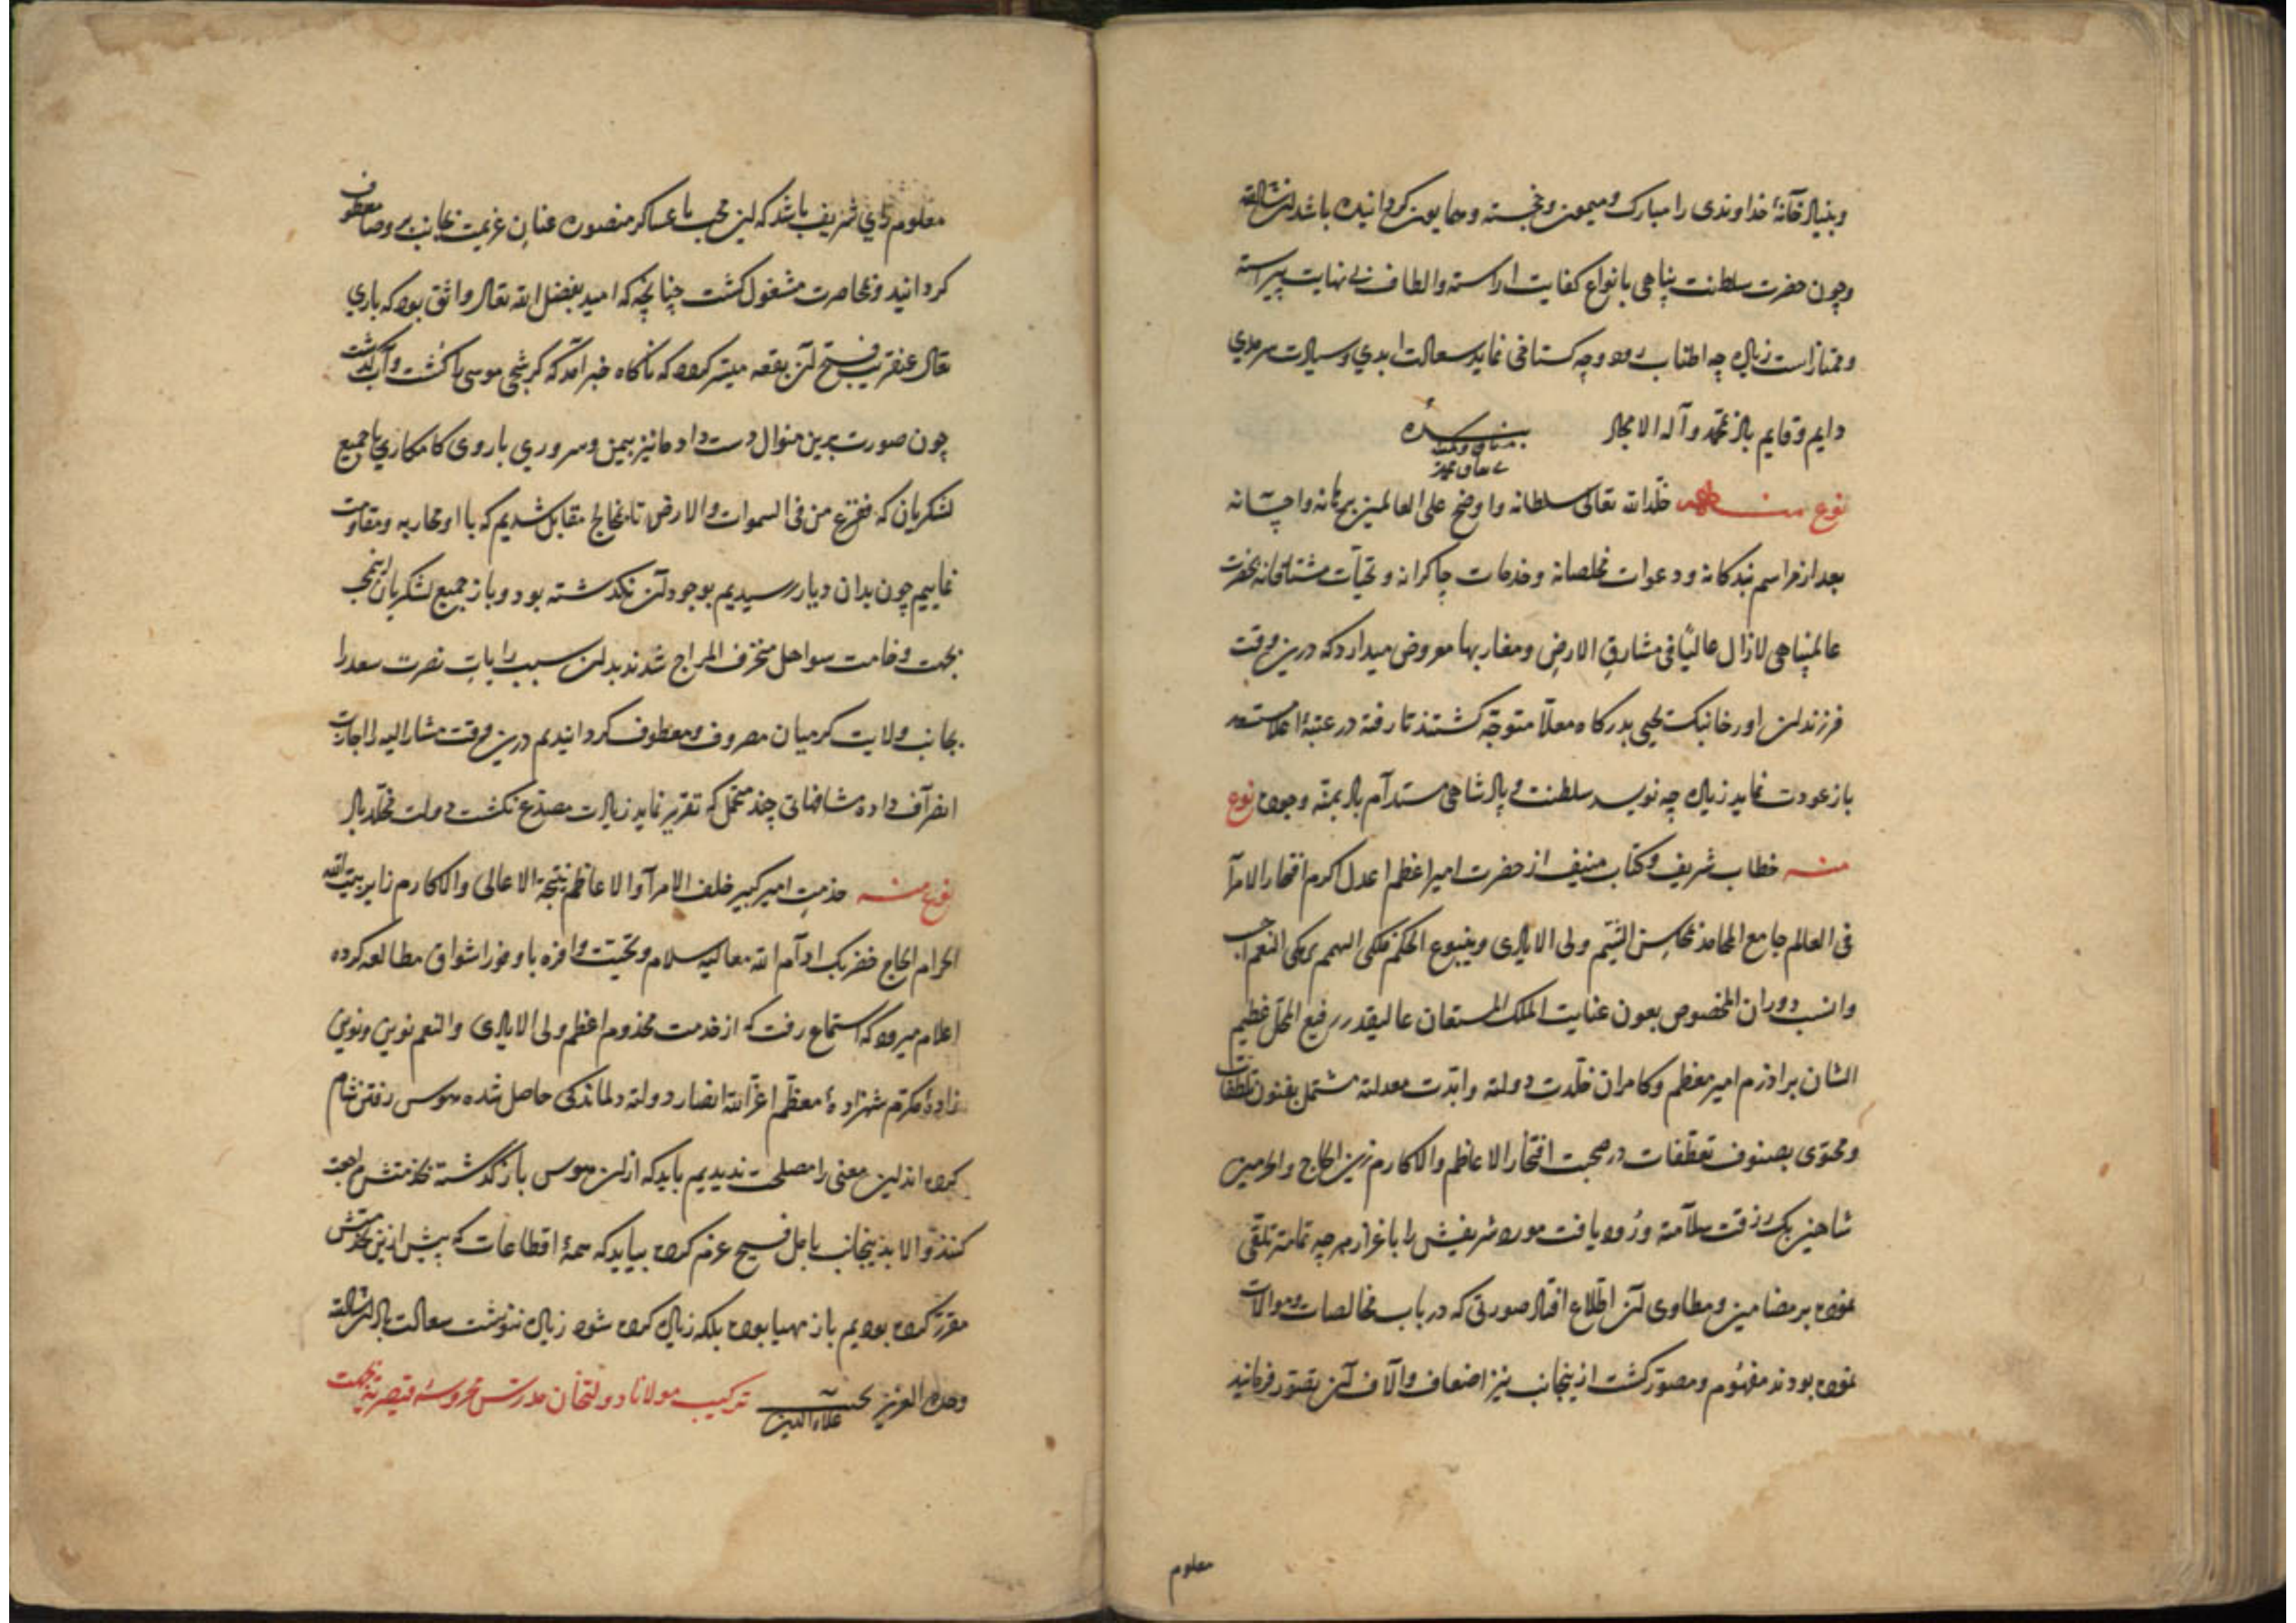 وبنیاد خانهٔ خداوندی را مبارک ومیمون وخجسته وهمایون کردانیده باشد ان شاالله
وچون حضرت سلطنت پناهی بانواع کفایت اراسته والطاف بی نهایت پیراسته
وممتاز است زیاده چه اطناب رود وچه کستاخی نماید سعادت ابدی وسیادت سرمدی
دایم وقایم باد بمحمد وآله الامجاد بنده
نوع منه خلّد الله تعالی سلطانه واوضح علی العالمین برهانه واحسانه
بعد از مراسم بندکانه ودعوات مخلصانه وخدمات چاکرانه وتحیّات مشتاقانه بحضرت
عالمپناهی لازال عالیًا فی مشارق الارض ومغاربها معروض میدارد که درین وقت
فرزندان اورخانبک یحیی بدرکاه معلّا متوجّه کشتند تا رفته در عتبهٔ اعلا
باز عودت نماید زیاده چه نویسد سلطنت وپادشاهی مستدآم باد بمنّه وجوده نوع
منه خطاب شریف وکتاب منیف از حضرت امیر اعظم اعدل اکرم افتخار الامرآ
فی العالم جامع المحامد محاسن الشیَم ولی الایادی وینبوع الحکَم ملکی الهمم برمکی النعم
وانسب دوران المخصوص بعون عنایت الملک المستعان عالیقدر رفیع المحلّ عظیم
الشان براذرم امیر معظم وکامران خلّدت دولته وابّدت معدلته مشتمل بفنون تلطّفات
ومحتوی بصنوف تعطّفات در صحبت افتخار الاعاظم والاکارم زین الحاج والحرمین
شاهین بک رزقت سلآمته ورُود یافت مورد شریفش را باعزاز هرچه تمامتر تلقّی
نموده بر مضامین ومطاوی آن اطّلاع افتاد صورتی که در باب مخالصات وموالات
نموده بودند مفهُوم ومصوّر کشت ازینجانب نیز اضعاف وآلاف آن تصوّر فرمایند
معلوم
معلوم رای شریف باشد که این محب با عساکر منصوره عنان عزیمت بجانب بروصا معطوف
کردانید وبمحاصرت مشغول کشت چنانچه که امید بفضل الله تعالی واثق بود که باری
تعالی عنقریب فتح آن بقعه میسّر کرده که ناکاه خبر آمد که کرشجی موسی را کُشت وآب کذشت
چون صورت برین منوال دست داد ما نیز بیمن وسروری باروی کامکاری با جمیع
لشکریان که ففزع من فی السموات والارض تا بخالج مقابل شدیم که با او محاربه ومقاومت
نماییم چون بدان دیار رسیدیم بوجود آن نکذشته بود وباز جمیع لشکریان
بجهت وخامت سواحل منحرف المزاج شدند بدان سبب رایات نصرت سعد را
بجانب ولایت کرمیان مصروف ومعطوف کردانیدیم درین وقت مشار الیه را اجازت
انصرآف داده مشافهاتی چند متحمّل که تقریر نماید زیادت مصدّع نکشت دولت مخلّد باد
نوع منه خذمتِ امیر کبیر خلف الامرآ والاعاظم نتیجة الاعالی والاکارم زایر بیت الله
الحرام الحاج خضر بک ادآم الله معالیه سلام وتحیّت وافره با وفور اشواق مطالعه کرده
اعلام میرود که استماع رفت که از خدمت مخذوم اعظم ولی الایادی والنعم نوین ونوین
زادهٔ مکرّم شهزادهٔ معظّم اعزّ الله انصار دولته دلماندکی حاصل شده هوس رفتن شام
کرده اند این معنی را مصلحت ندیدیم باید که ازان هوس باز گذشته بخذمتش مراجعت
کنند والا بذینجانب بامل فسیح عزم کرده بیاید که همهٔ اقطاعات که پیش ازین بخدمتش
مقرّر کرده بودیم باز مهیا بوده بلکه زیاده کرده شود زیاده ننوشت سعادت باد ان شاالله
وحده العزیز محب علاء الدین ترکیب مولانا دولتخان مدرّس محروسهٔ قیصریّه بجهت